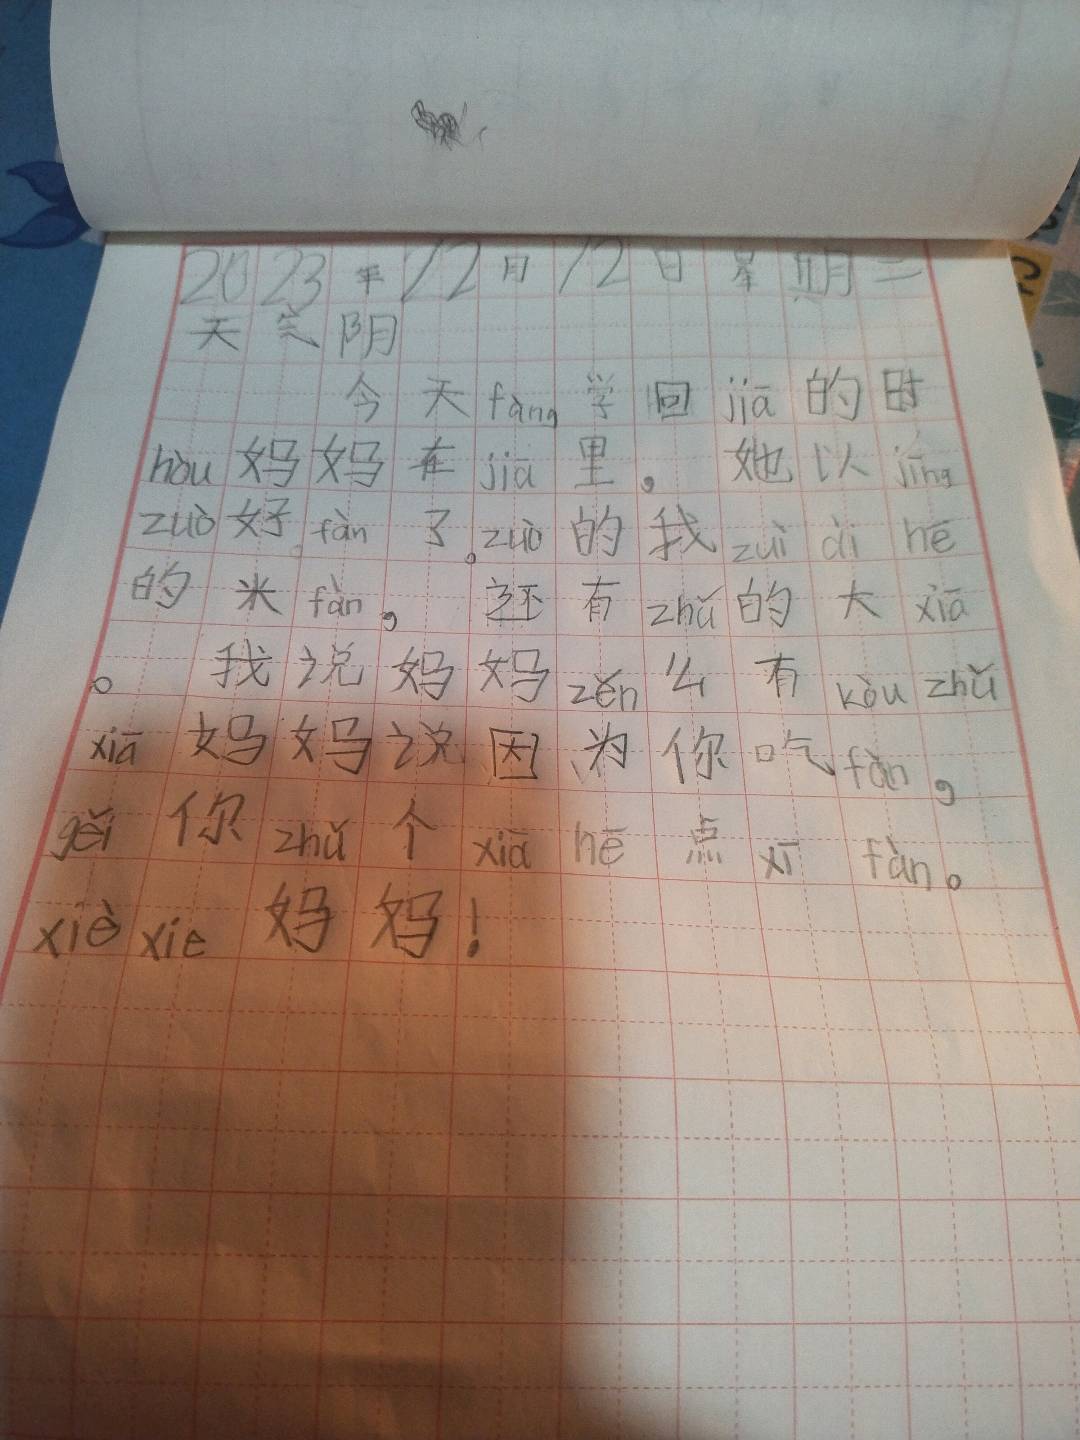 2023年12月12日星期二
天气阴
今天fàng学回jiā的时
hòu妈妈在jiā里。她以jīng
zuò好fàn了。zuò的我zuì ài hē
的米fàn，还有zhǔ的大xiā
。我说妈妈zěn么有kòu zhǔ
xiā妈妈说因为你吃fàn，
gěi你zhǔ个xiā hē点xī fàn。
xiè xie妈妈！